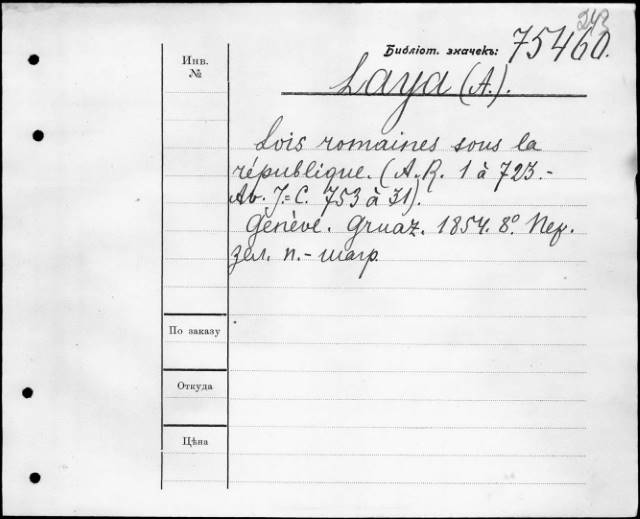 243
Библіот. значекъ: 75460.
Инв.
№
Laya (A.).
Lois romaines sous la
république. (A. R. 1 à 723.-
Av. J.=C. 753 à 31).
Genève. Gruaz. 1854. 8º. Пер.
зел. п.-шагр.
По заказу
Откуда
Цѣна